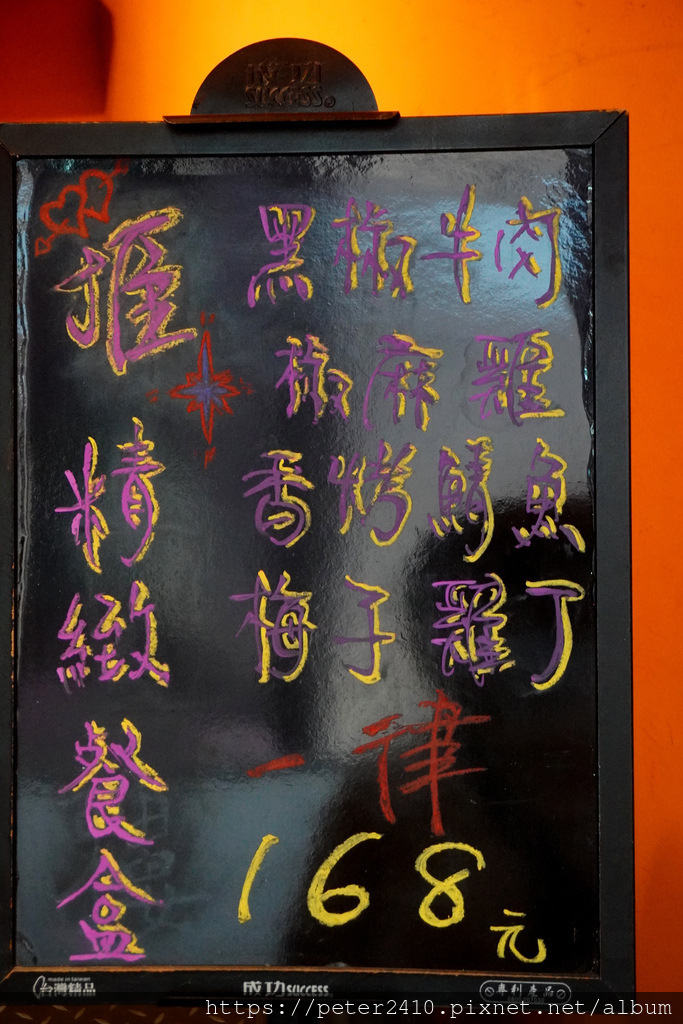 SUCCESS
推
精
緻
餐
盒
黑椒牛肉
椒麻雞
香烤鯖魚
梅子雞丁
一律
168元
made in taiwan
台灣精品
成功SUCCESS
專利產品
https://peter2410.pixnet.net/album